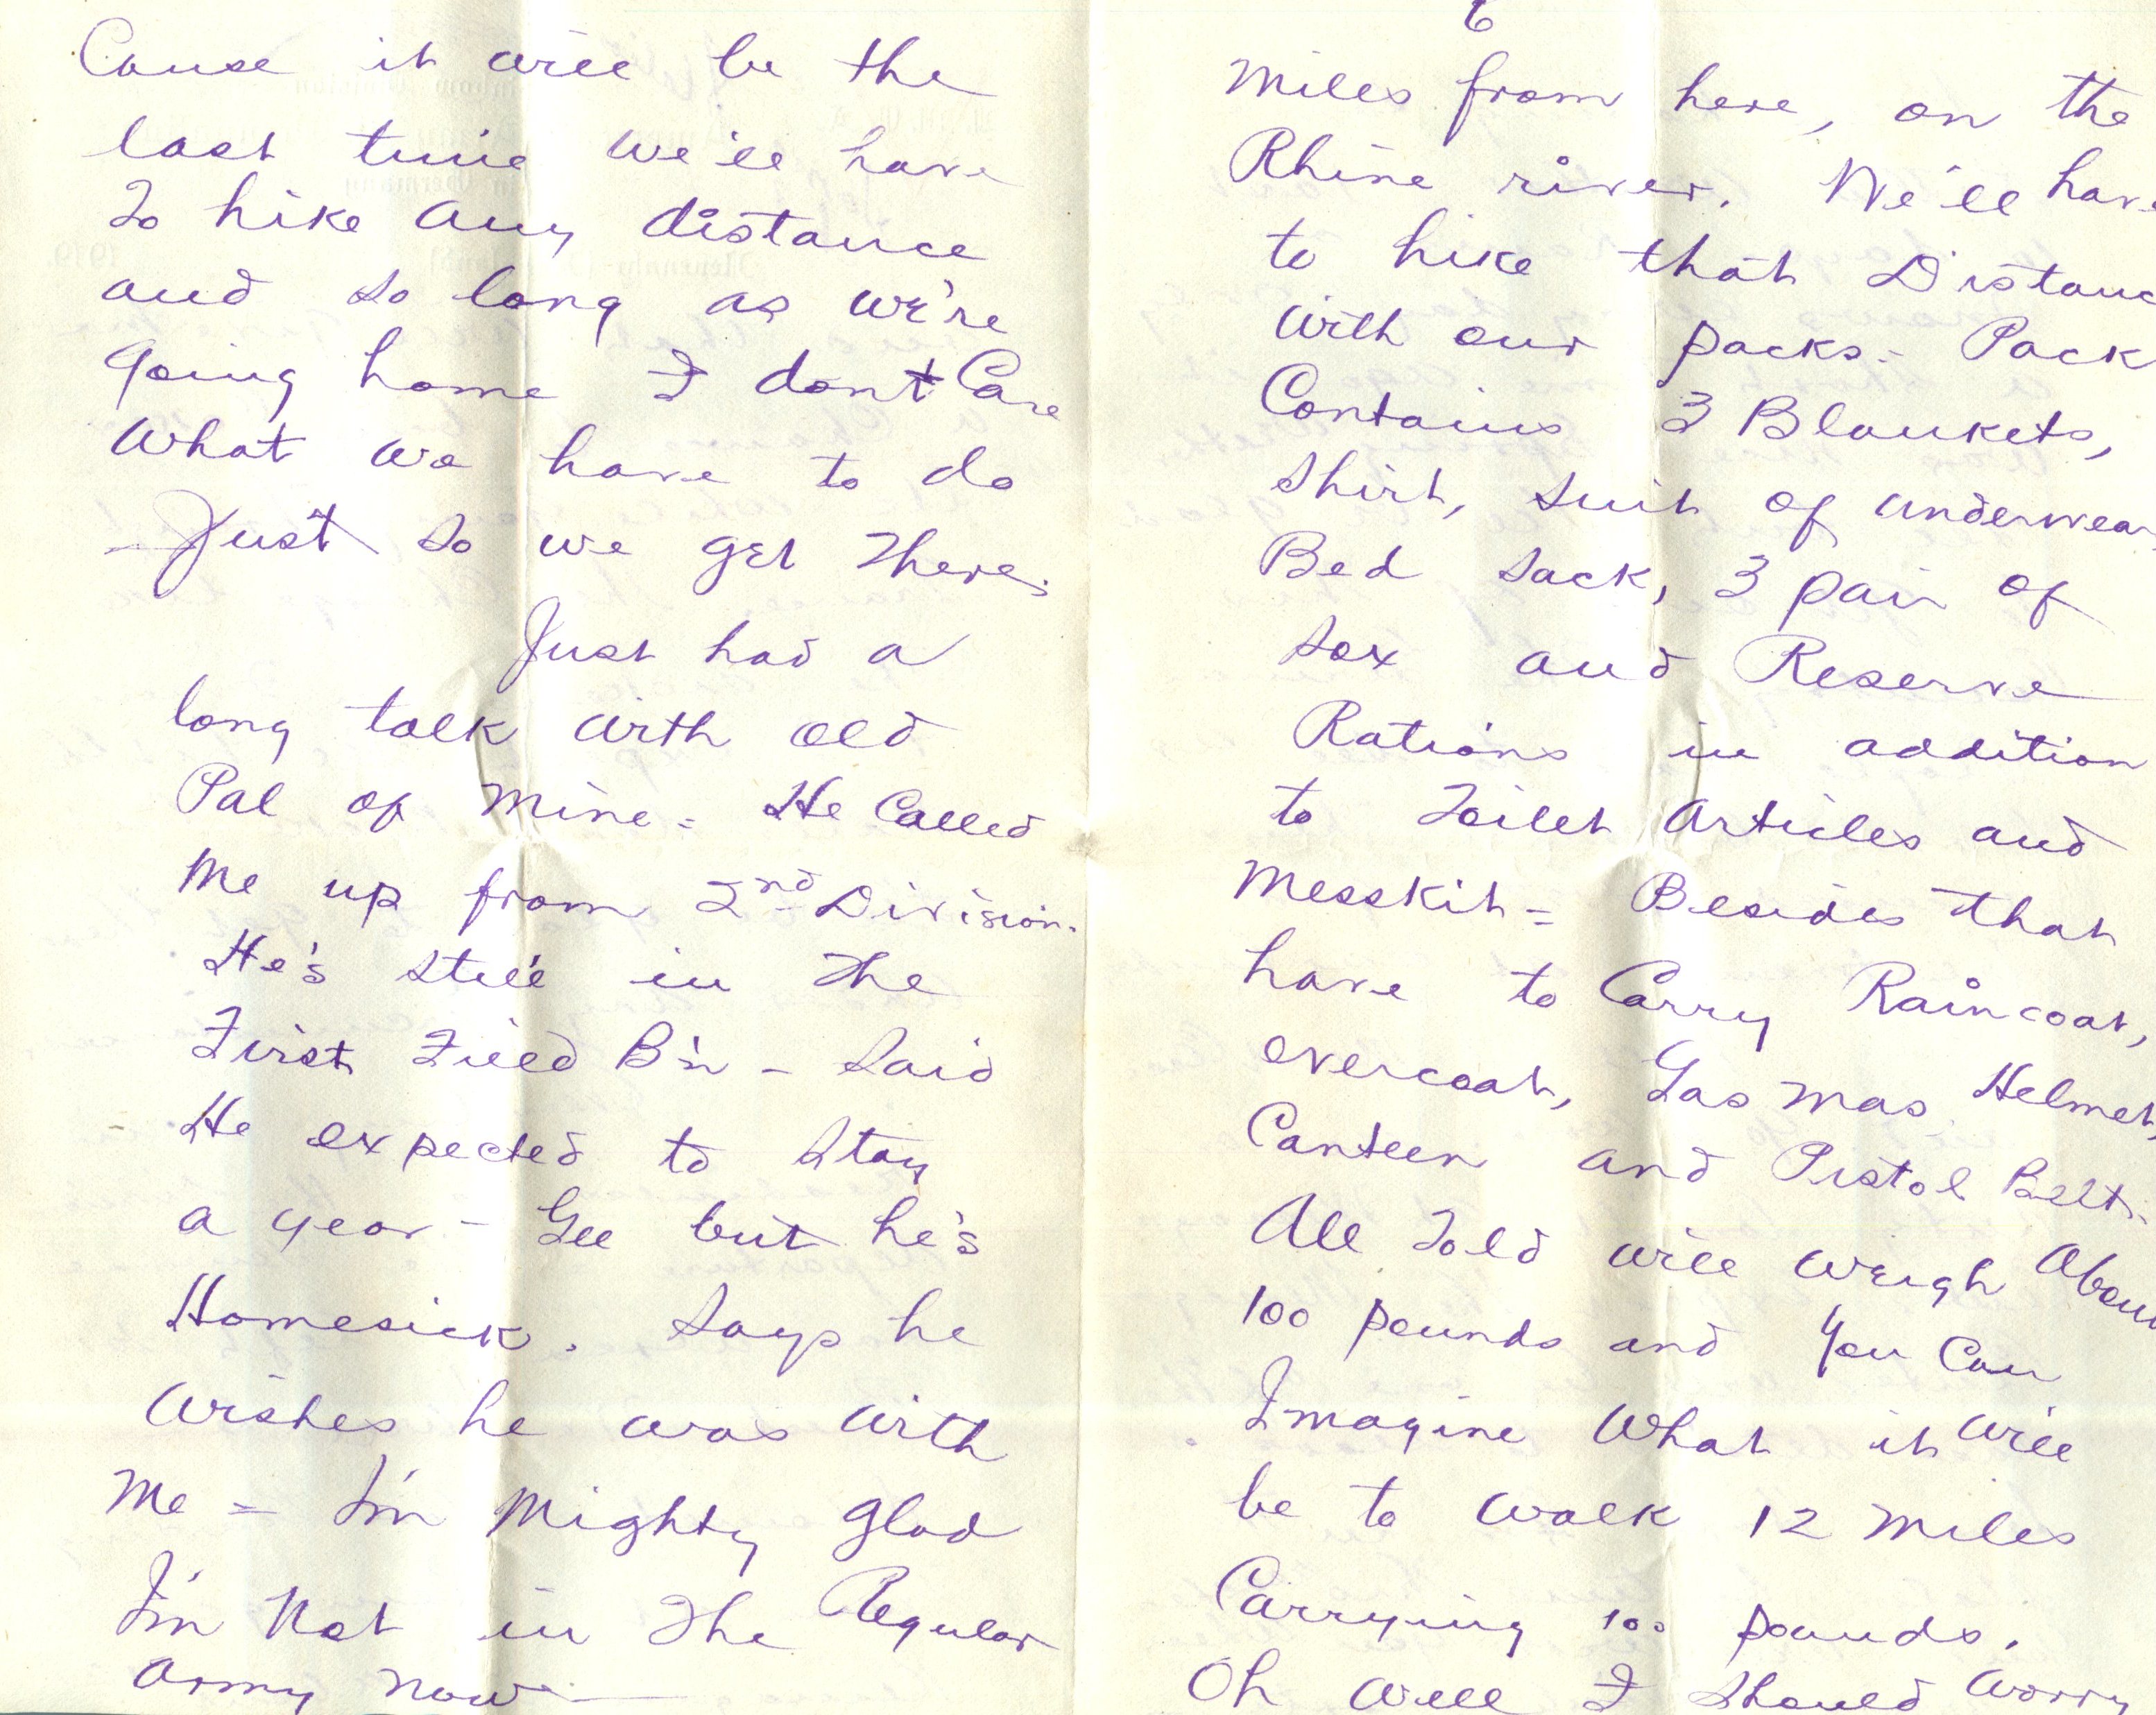 Cause it will be the
last time we'll have
to hike any distance
and so long as we're
going home I don't Care
What we have to do
Just so we get there.
Just had a
long talk with old
Pal of Mine = He Called
Me up from 2nd Division.
He's still in the
First Field B'n - Said
He expected to stay
a year - Gee but he's
Homesick. Says he
Wishes he was with
Me = I'm Mighty glad
I'm Not in the Regular
Army now
6
Miles from here, on the
Rhine river. We'll have
to hike that Distanc
With our packs - Pack
Contains 3 Blankets,
Shirt, Suit of underwear
Bed Sack, 3 pair of
Sox and Reserve
Rations in addition
to Toilet Articles and
Messkit = Besides that
have to Carry Raincoat,
overcoat, Gas mas Helmet,
Canteen and Pistol Belt.
All Told will weigh Abou
100 pounds and You Can
Imagine What it Will
be to walk 12 miles
Carrying 100 pounds.
Oh Well I should worry